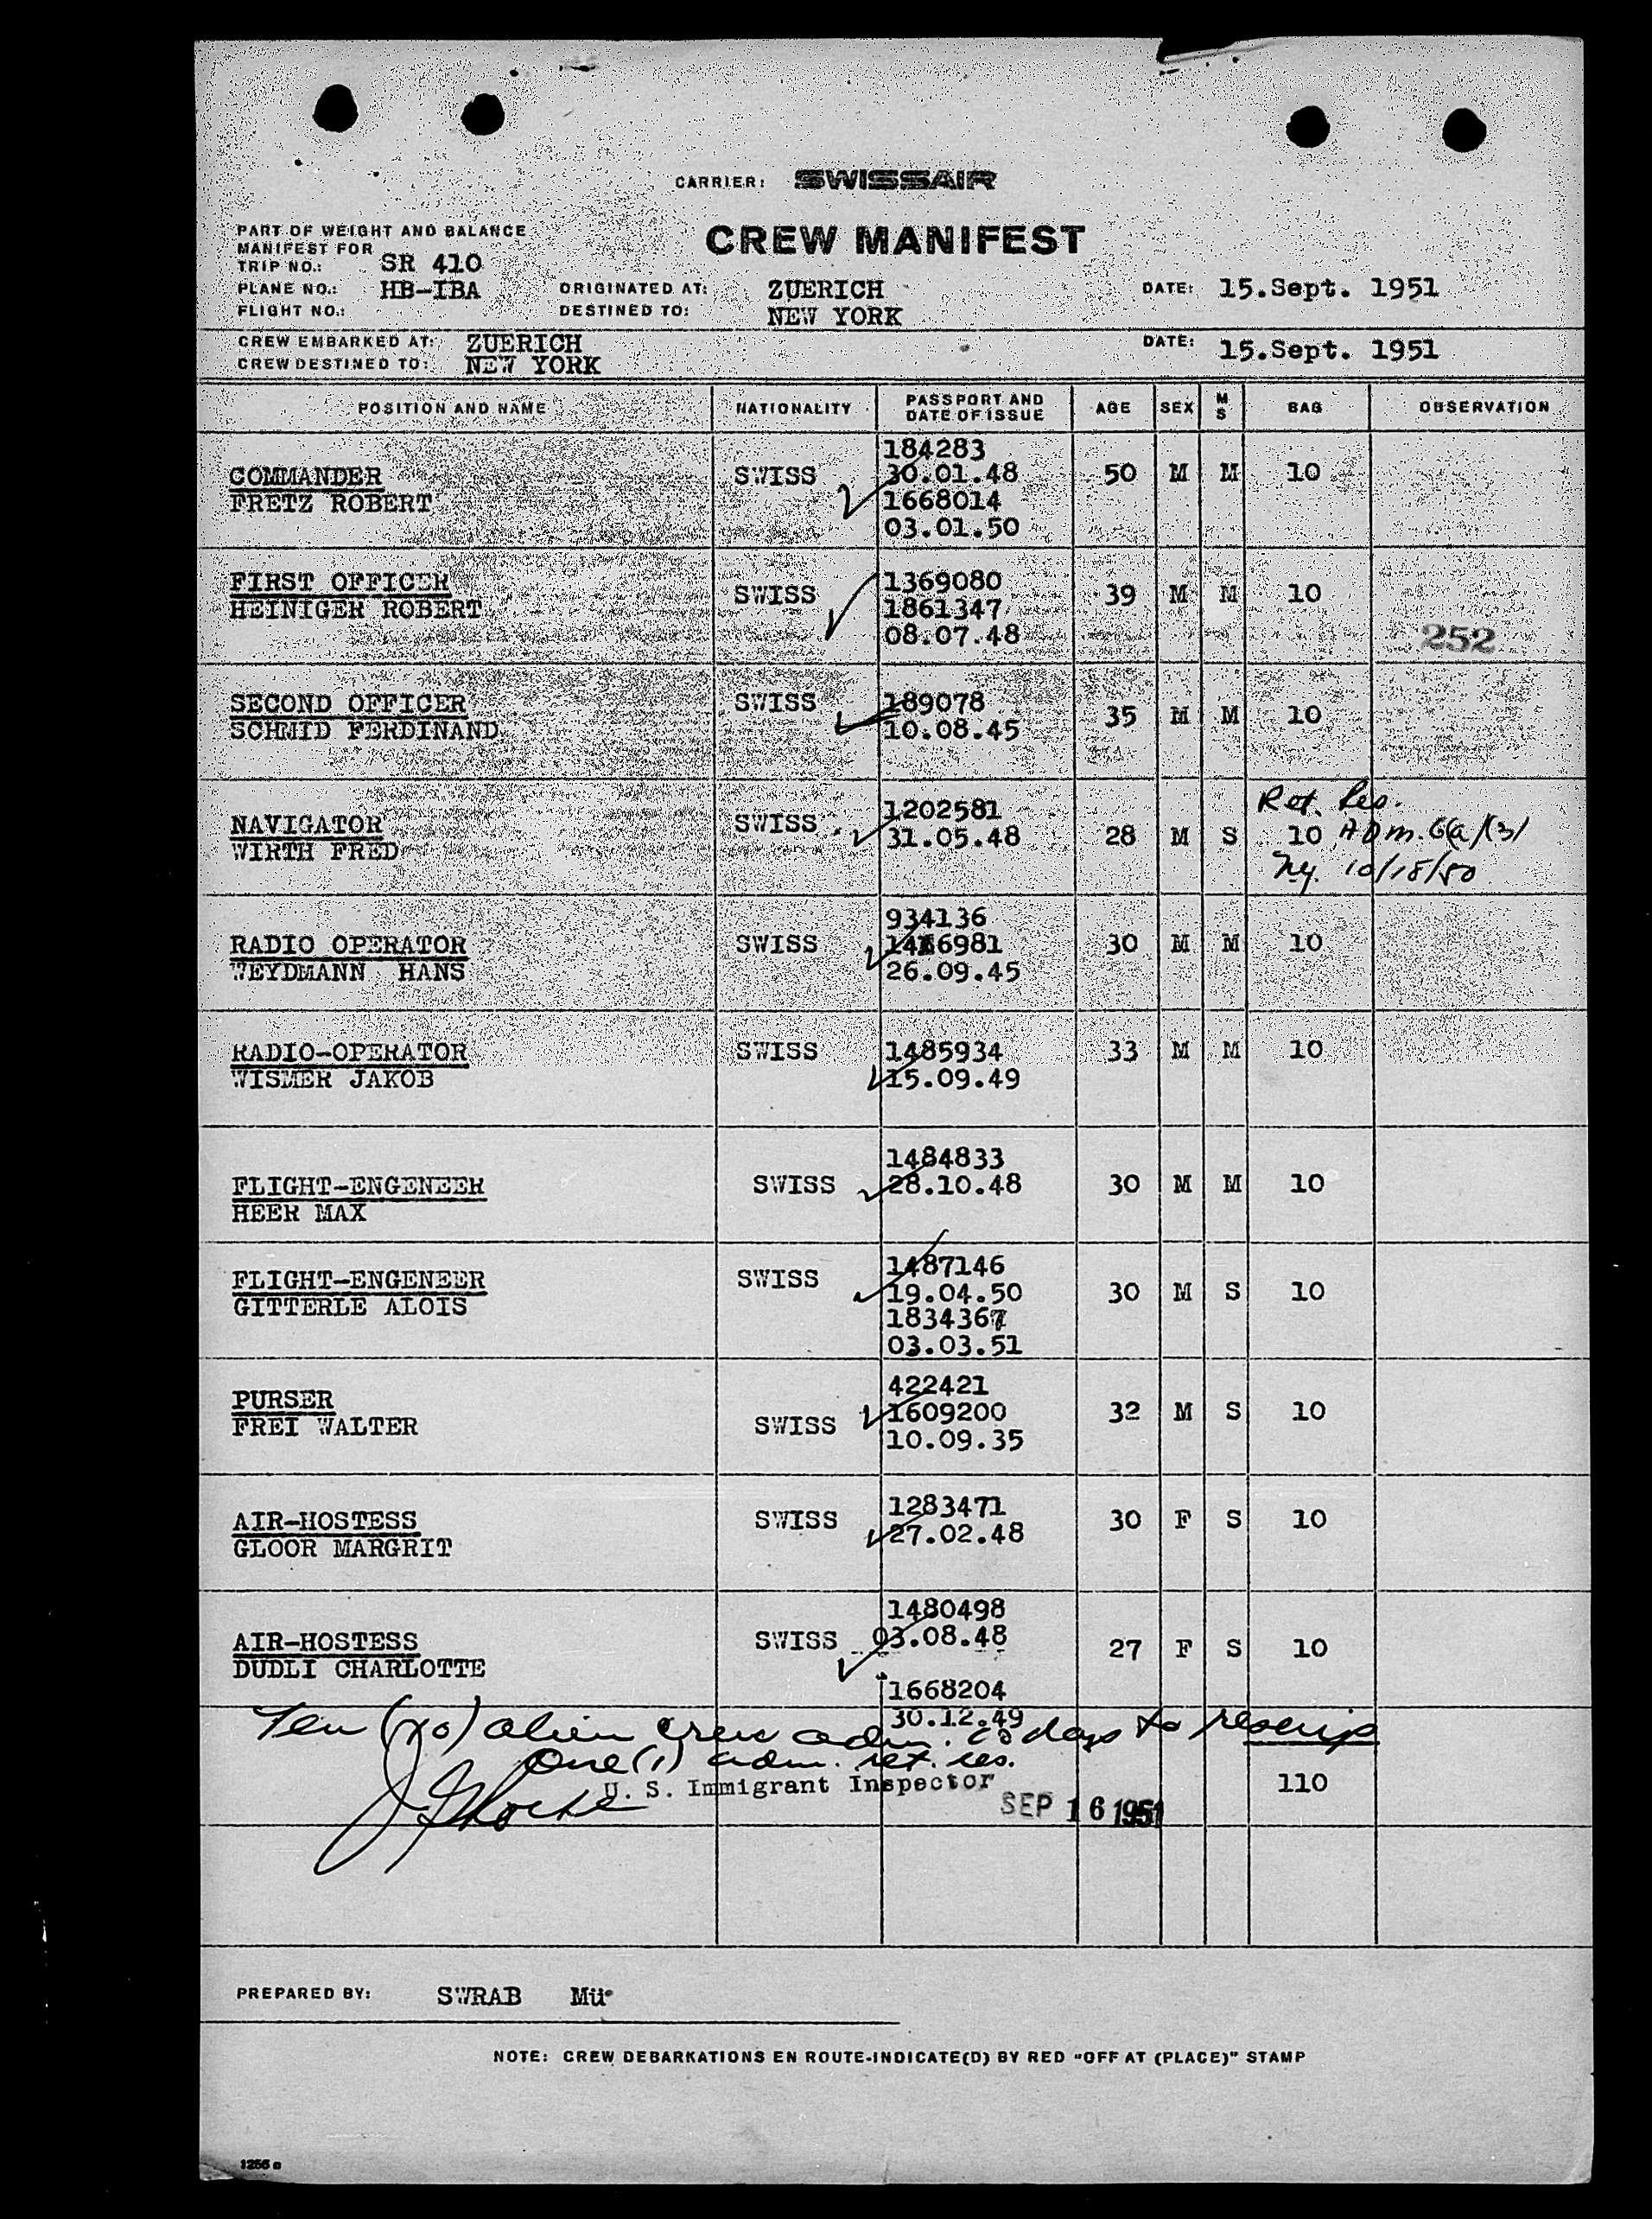 CARRIER: SWISSAIR
CREW MANIFEST
PART OF WEIGHT AND BALANCE
MANIFEST FOR
TRIP NO.: SR 410
PLANE NO.: HB-IBA ORIGINATED AT: ZUERICH DATE: 15.Sept. 1951
FLIGHT NO.: DESTINED TO: NEW YORK
CREW EMBARKED AT: ZUERICH DATE: 15.Sept. 1951
CREW DESTINED TO: NEW YORK
POSITION AND NAME NATIONALITY PASSPORT AND DATE OF ISSUE AGE SEX M S BAG OBSERVATION
184283
COMMANDER SWISS 30.01.48 50 M M 10
FRETZ ROBERT 1668014
03.01.50
FIRST OFFICER SWISS 1369080 39 M M 10
HEINIGER ROBERT 1861347
08.07.48 252
SECOND OFFICER SWISS 189078 35 M M 10
SCHMID FERDINAND 10.08.45
Ret. Res.
NAVIGATOR SWISS 1202581
WIRTH FRED 31.05.48 28 M S 10 Adm. 6(a)(3)
Ny. 10/18/50
934136
RADIO OPERATOR SWISS 30 M M 10
WEYDMANN HANS 26.09.45
RADIO-OPERATOR SWISS 1485934 33 M M 10
WISMER JAKOB 15.09.49
1484833
FLIGHT-ENGENEER SWISS 28.10.48 30 M M 10
HEER MAX
1487146
FLIGHT-ENGENEER SWISS 19.04.50 30 M S 10
GITTERLE ALOIS 1834367
03.03.51
422421
PURSER SWISS 1609200 32 M S 10
FREI WALTER 10.09.35
1283471
AIR-HOSTESS SWISS 27.02.48 30 F S 10
GLOOR MARGRIT
1480498
AIR-HOSTESS SWISS 03.08.48 27 F S 10
DUDLI CHARLOTTE
1668204
30.12.49
Ten (10) alien crew adm. days to
One (1) adm. ret. res.
U. S. Immigrant Inspector 110
SEP 16 1951
PREPARED BY: SWRAB Mü
NOTE: CREW DEBARKATIONS EN ROUTE-INDICATE(D) BY RED "OFF AT (PLACE)" STAMP
1256